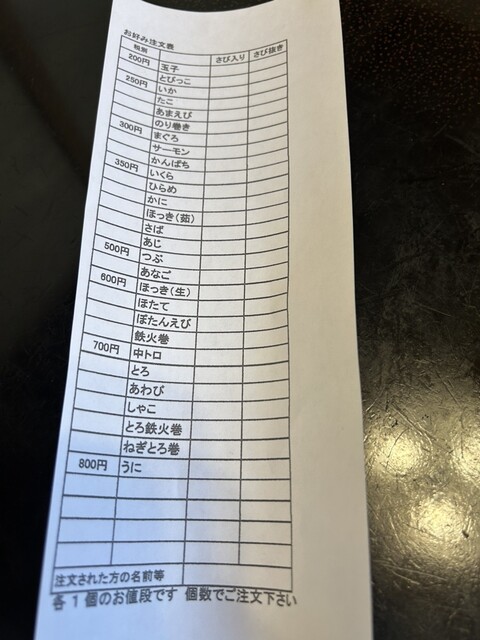 お好み注文表
種別 さび入り さび抜き
200円 玉子
250円 とびっこ
いか
たこ
あまえび
のり巻き
300円 まぐろ
サーモン
かんぱち
350円 いくら
ひらめ
かに
ほっき(茹)
さば
あじ
500円 つぶ
あなご
600円 ほっき(生)
ほたて
ぼたんえび
鉄火巻
700円 中トロ
とろ
あわび
しゃこ
とろ鉄火巻
ねぎとろ巻
800円 うに
注文された方の名前等
各1個のお値段です 個数でご注文下さい